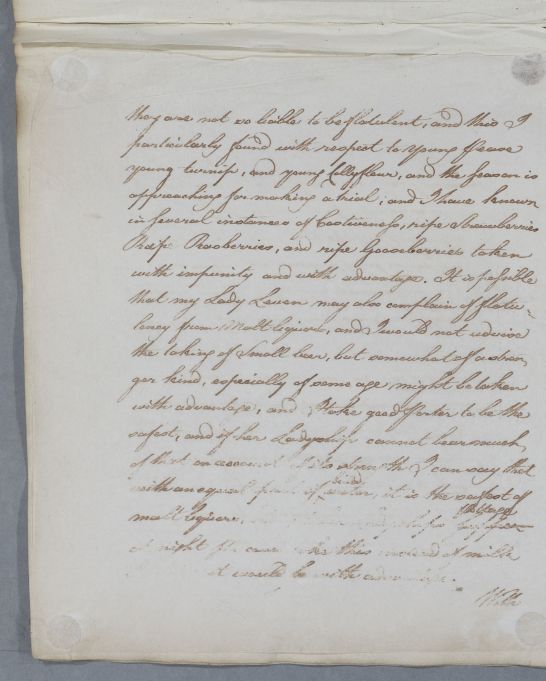 they are not so liable to be flatulent, and this I
particularly found with respect to Young Pease
young turnip, and young Collyfleur, and the Season is
approaching for making a trial; and I have known
in several instances of Costiveness, ripe Strawberries
Rasberries, and ripe Gooseberries taken
with impunity and with advantage. It is possible
that my Lady Leven may also complain of flatu-
lency from Malt liquors, and I would not advise
the taking of Small beer, but somewhat of a stron-
ger kind, especially of some age might be taken
with advantage, and I take good Porter to be the
safest, and if her Ladyship cannot bear much
of that on account of its strength I can say that
with an equal part of water, it is the safest of
malt liquors,
at night this instead of milk
it would be with advantage.